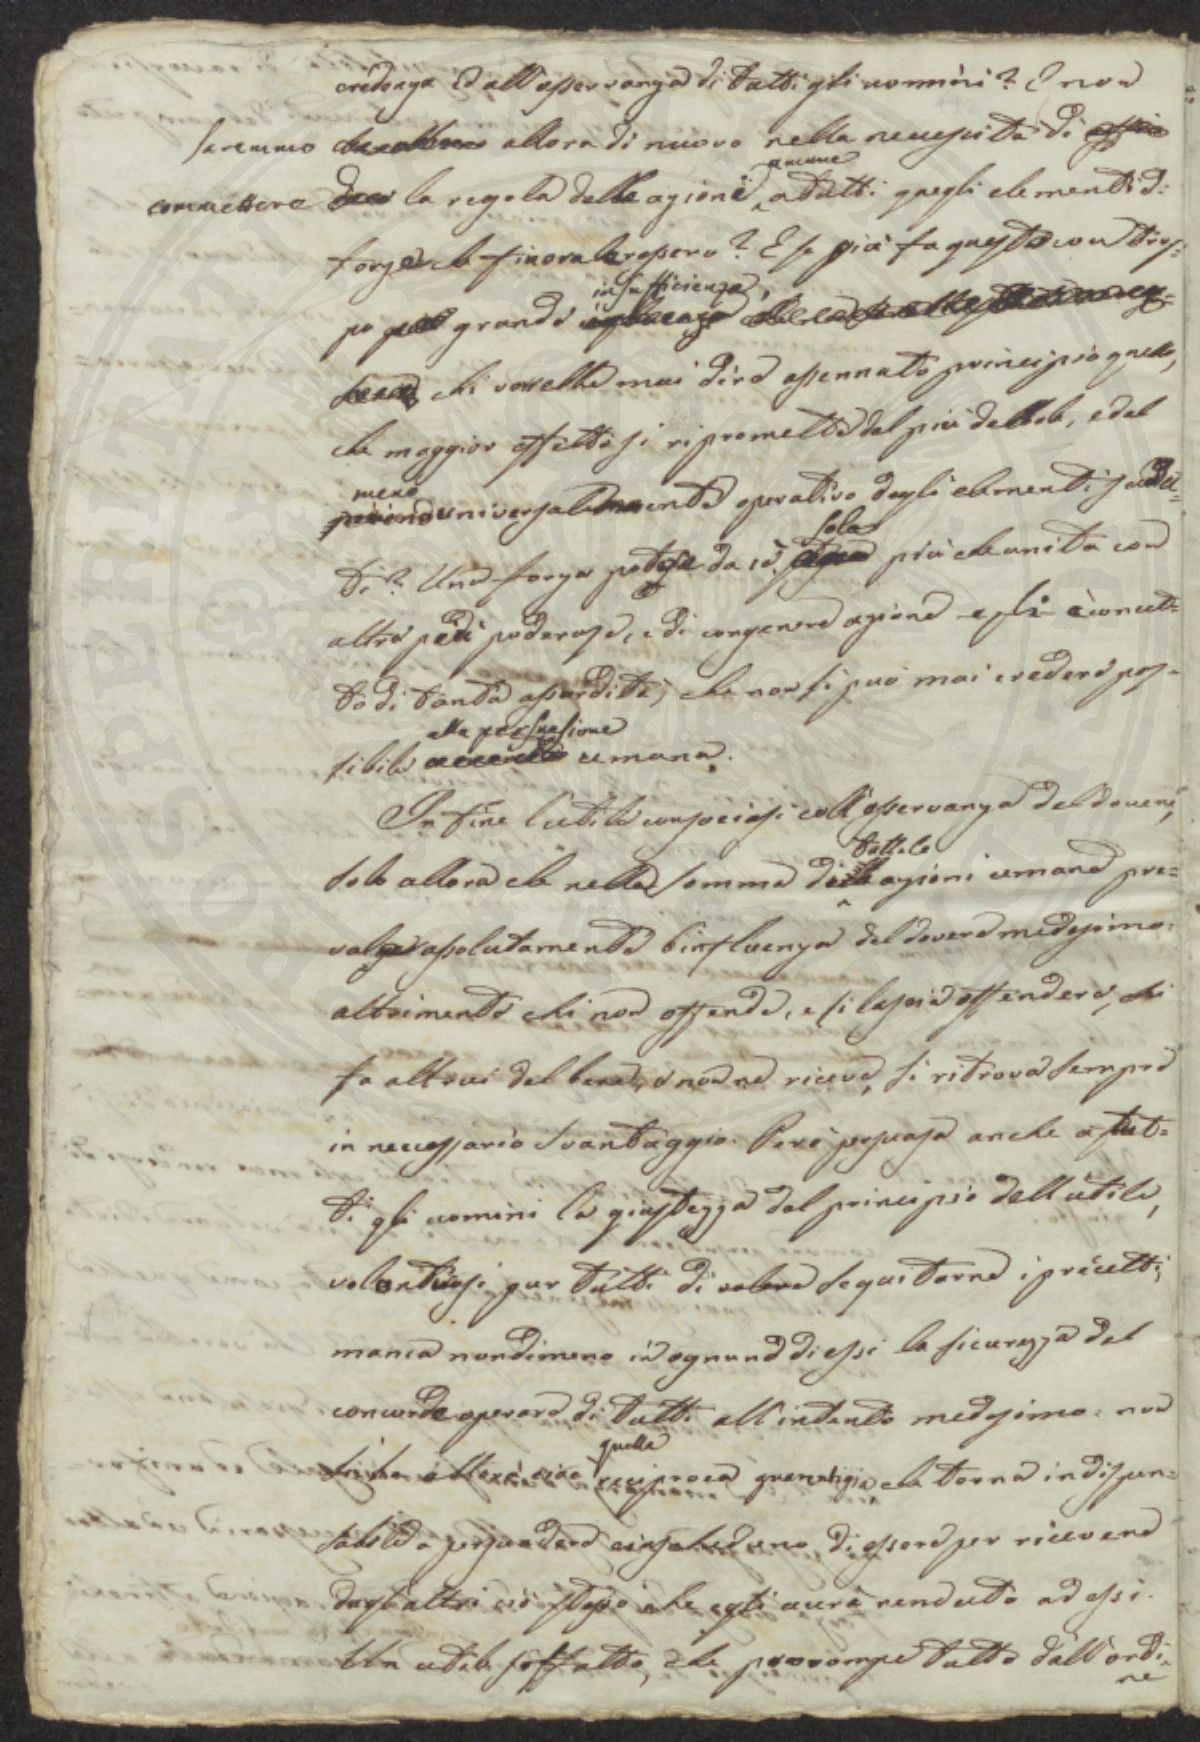 credenza ed all'osservanza di tutti gli uomini? E non
saremmo allora di nuovo nella necessità di
commettere la regola delle azioni umane a tutti quegli elementi di
forza che finora la ressero? E se già fu questa con trop-
po grande insufficienza,
chi vorrebbe mai dire assennato principio quello,
che maggior effetto si ripromette dal più debole, e dal
meno universalmente operativo degli elementi suddet-
ti? Una forza potesse da sè sola più che unita con
altre più poderose, e di congenere azione egli è concet-
to di tanta assurdità, che non si può mai credere pos-
sibile alla persuasione umana.
In fine l'utile consociasi coll'osservanza del dovere,
solo allora che nella somma di tutte le azioni umane pre-
valga assolutamente l'influenza del dovere medesimo:
altrimenti chi non offende, e si lascia offendere, chi
fa altrui del bene, e non ne riceve, si ritrova sempre
in necessario svantaggio. Però persuasa anche a tut-
ti gli uomini la giustezza del principio dell'utile,
volontarosi pur tutti di volere seguitarne i precetti,
manca nondimeno in ognuno di essi la sicurezza del
concorde operare di tutti all'intento medesimo: non
si ha allora cioè quella reciproca guarentigia, che torna indispen-
sabile a persuadere ciascheduno di essere per ricevere
dagli altri ciò stesso che egli avrà renduto ad essi.
Un utile siffatto, che prorompe tutto dall'ordi-
ne